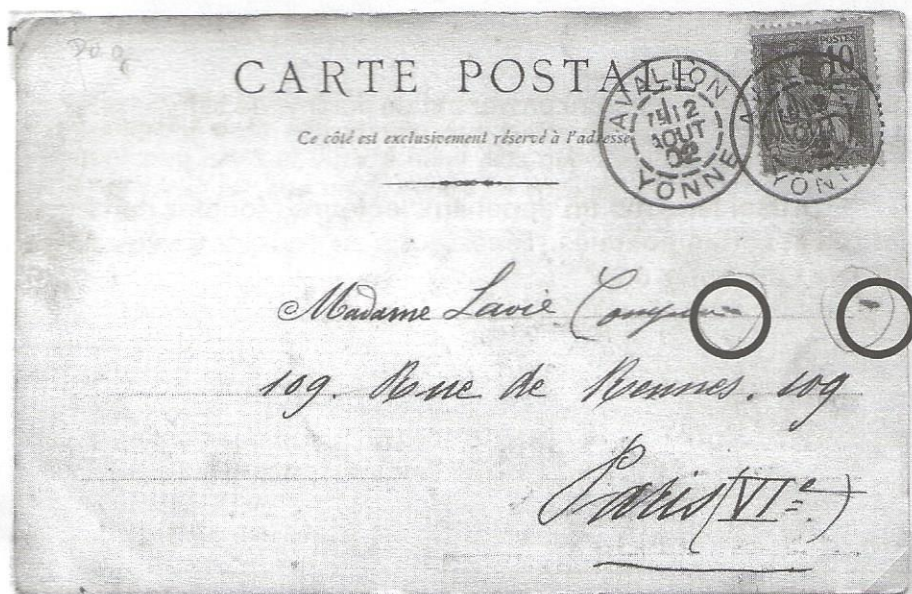 CARTE POSTALE
Ce côté est exclusivement réservé à l'adresse
POSTES
10
AVALLON
12
AOUT
02
YONNE
Madame Lavié
109. Rue de Rennes. 109
Paris (VIe.)